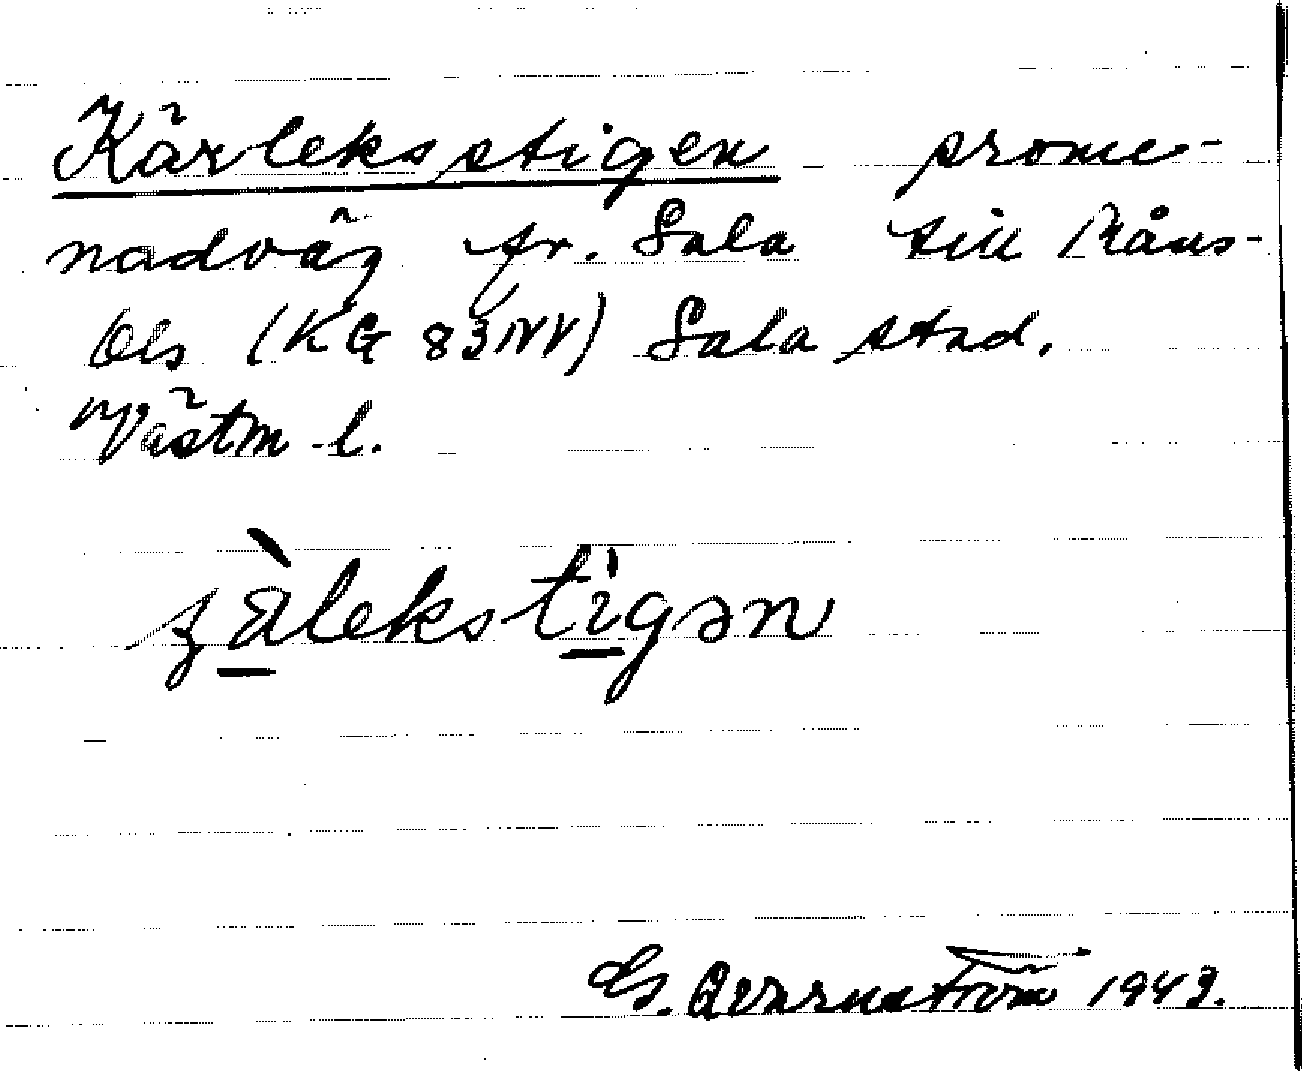 Kärleksstigen prome-
nadväg fr. Sala till Råns-
bls (KG 83NV) Sala stad.
Västm l.
E. Qvarnström 1942.